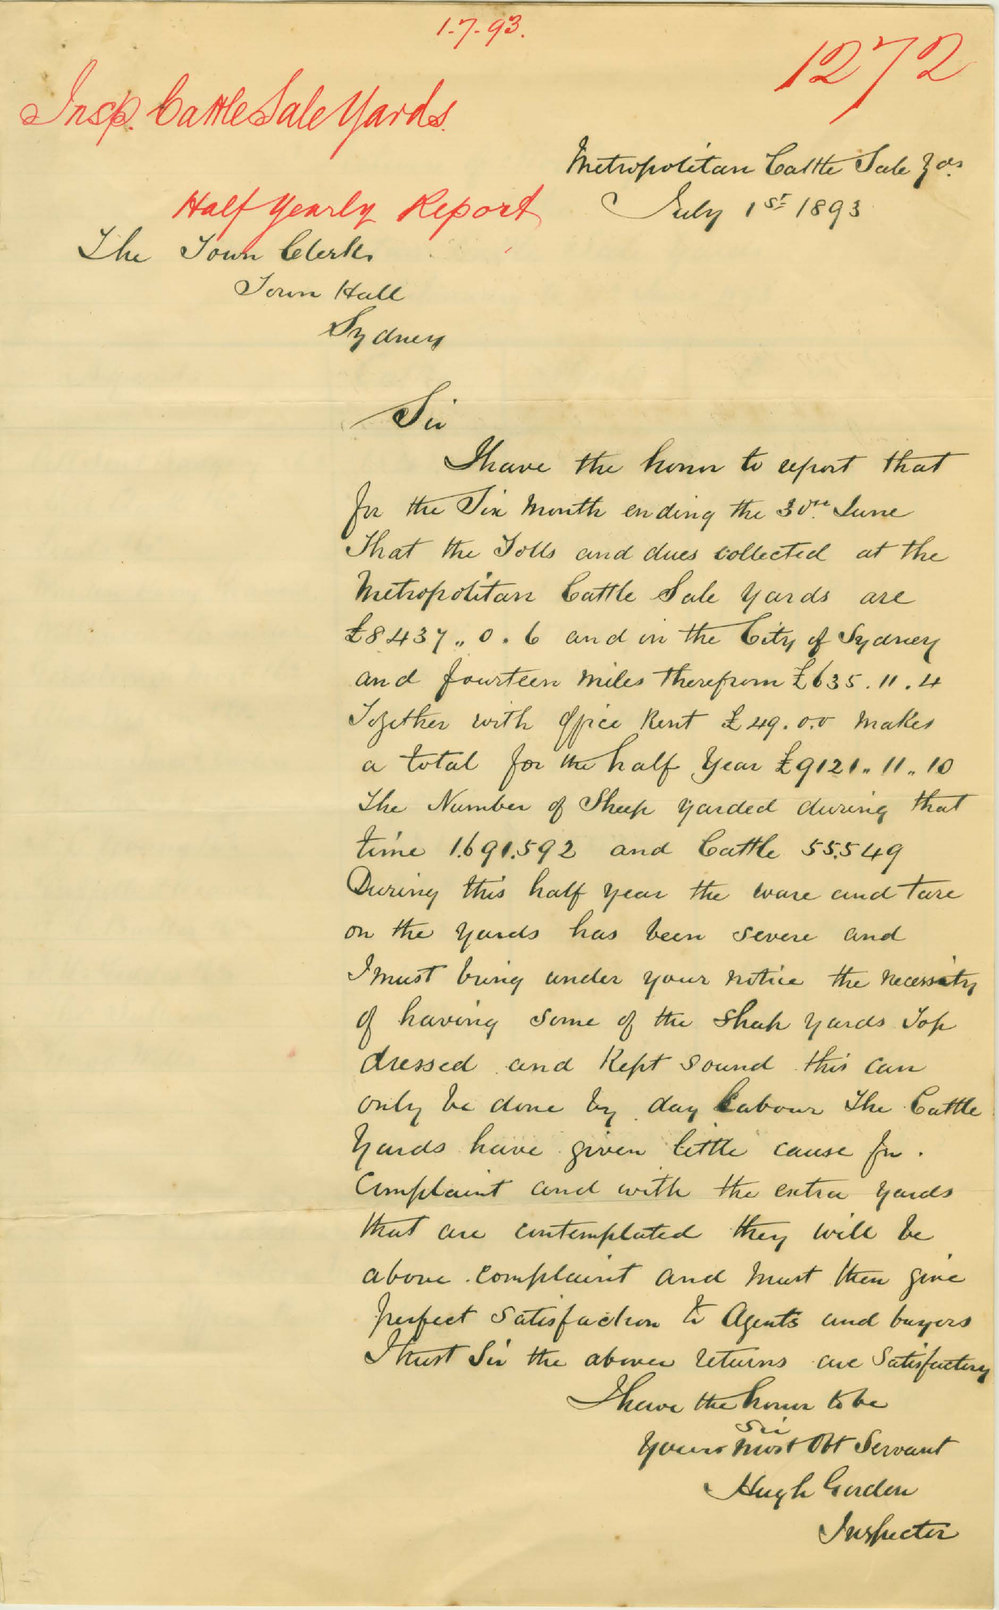 1.7.93.
1272
Insp. Cattle Sale Yards.
Half Yearly Report
Metropolitan Cattle Sale Yds.
July 1st 1893
The Town Clerk
Town Hall
Sydney
Sir
I have the honor to report that
for the Six Month ending the 30th June
That the Tolls and dues collected at the
Metropolitan Cattle Sale Yards are
£8437,, 0 . 6 and in the City of Sydney
and fourteen Miles therefrom £635 . 11 . 4
Together with Office Rent £49 . 0.0 Makes
a total for the half Year £9121 ,, 11 ,, 10
The Number of Sheep Yarded during that
time 1.691.592 and Cattle 55.549
During this half year the ware and tare
on the yards has been severe and
I must bring under your notice the necessity
of having some of the Sheep yards Top
dressed and Kept sound this can
only be done by day Labour The Cattle
Yards have given little cause for .
Complaint and with the extra yards
that are contemplated they will be
above complaint and Must then give
perfect Satisfaction to Agents and buyers
I trust Sir the above returns are Satisfactory
I have the honor to be
Sir
Yours Most Obt Servant
Hugh Gordon
Inspector